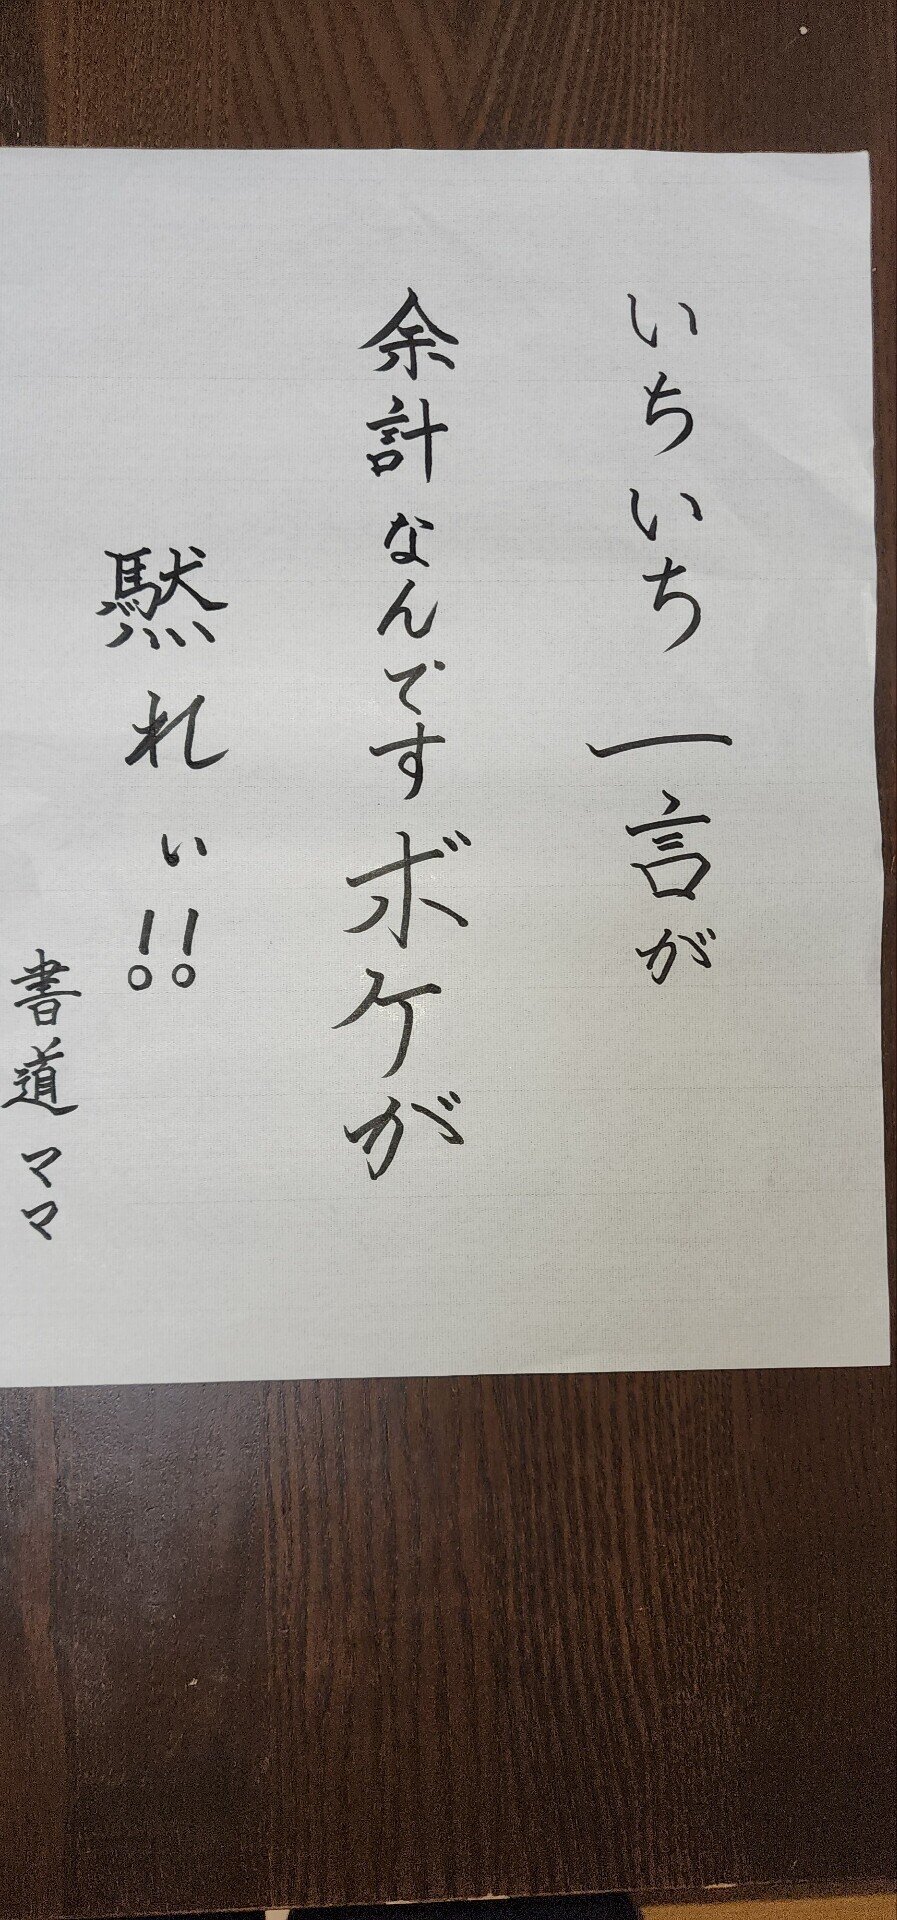 いちいち一言が
余計なんですボケが
黙れぃ!!
書道ママ